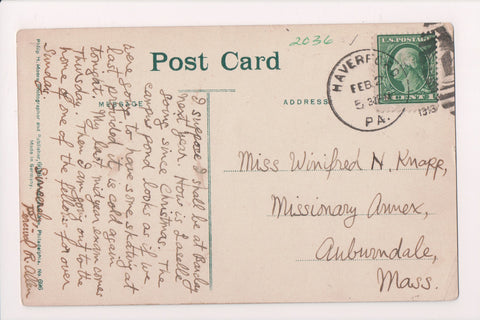 2036 1
Post Card
MESSAGE
ADDRESS
U.S. POSTAGE
HAVERFORD
FEB
5 30
1913
PA.
I suppose I shall be at Barclay
next year. How is Lasell
going since Christmas. The
campus pond looks as if we
were going to have some skating at
last provided it is cold again
tonight. My last midyear exam comes
Thursday. Then I am going out to the
home of one of the fellows for over
Sunday. Sincerely,
R. Allen
Miss Winifred N. Knapp,
Missionary Annex,
Auburndale,
Mass.
Philip H. Moore, Photographer and Publisher,
Philadelphia, Pa.
Made in Germany